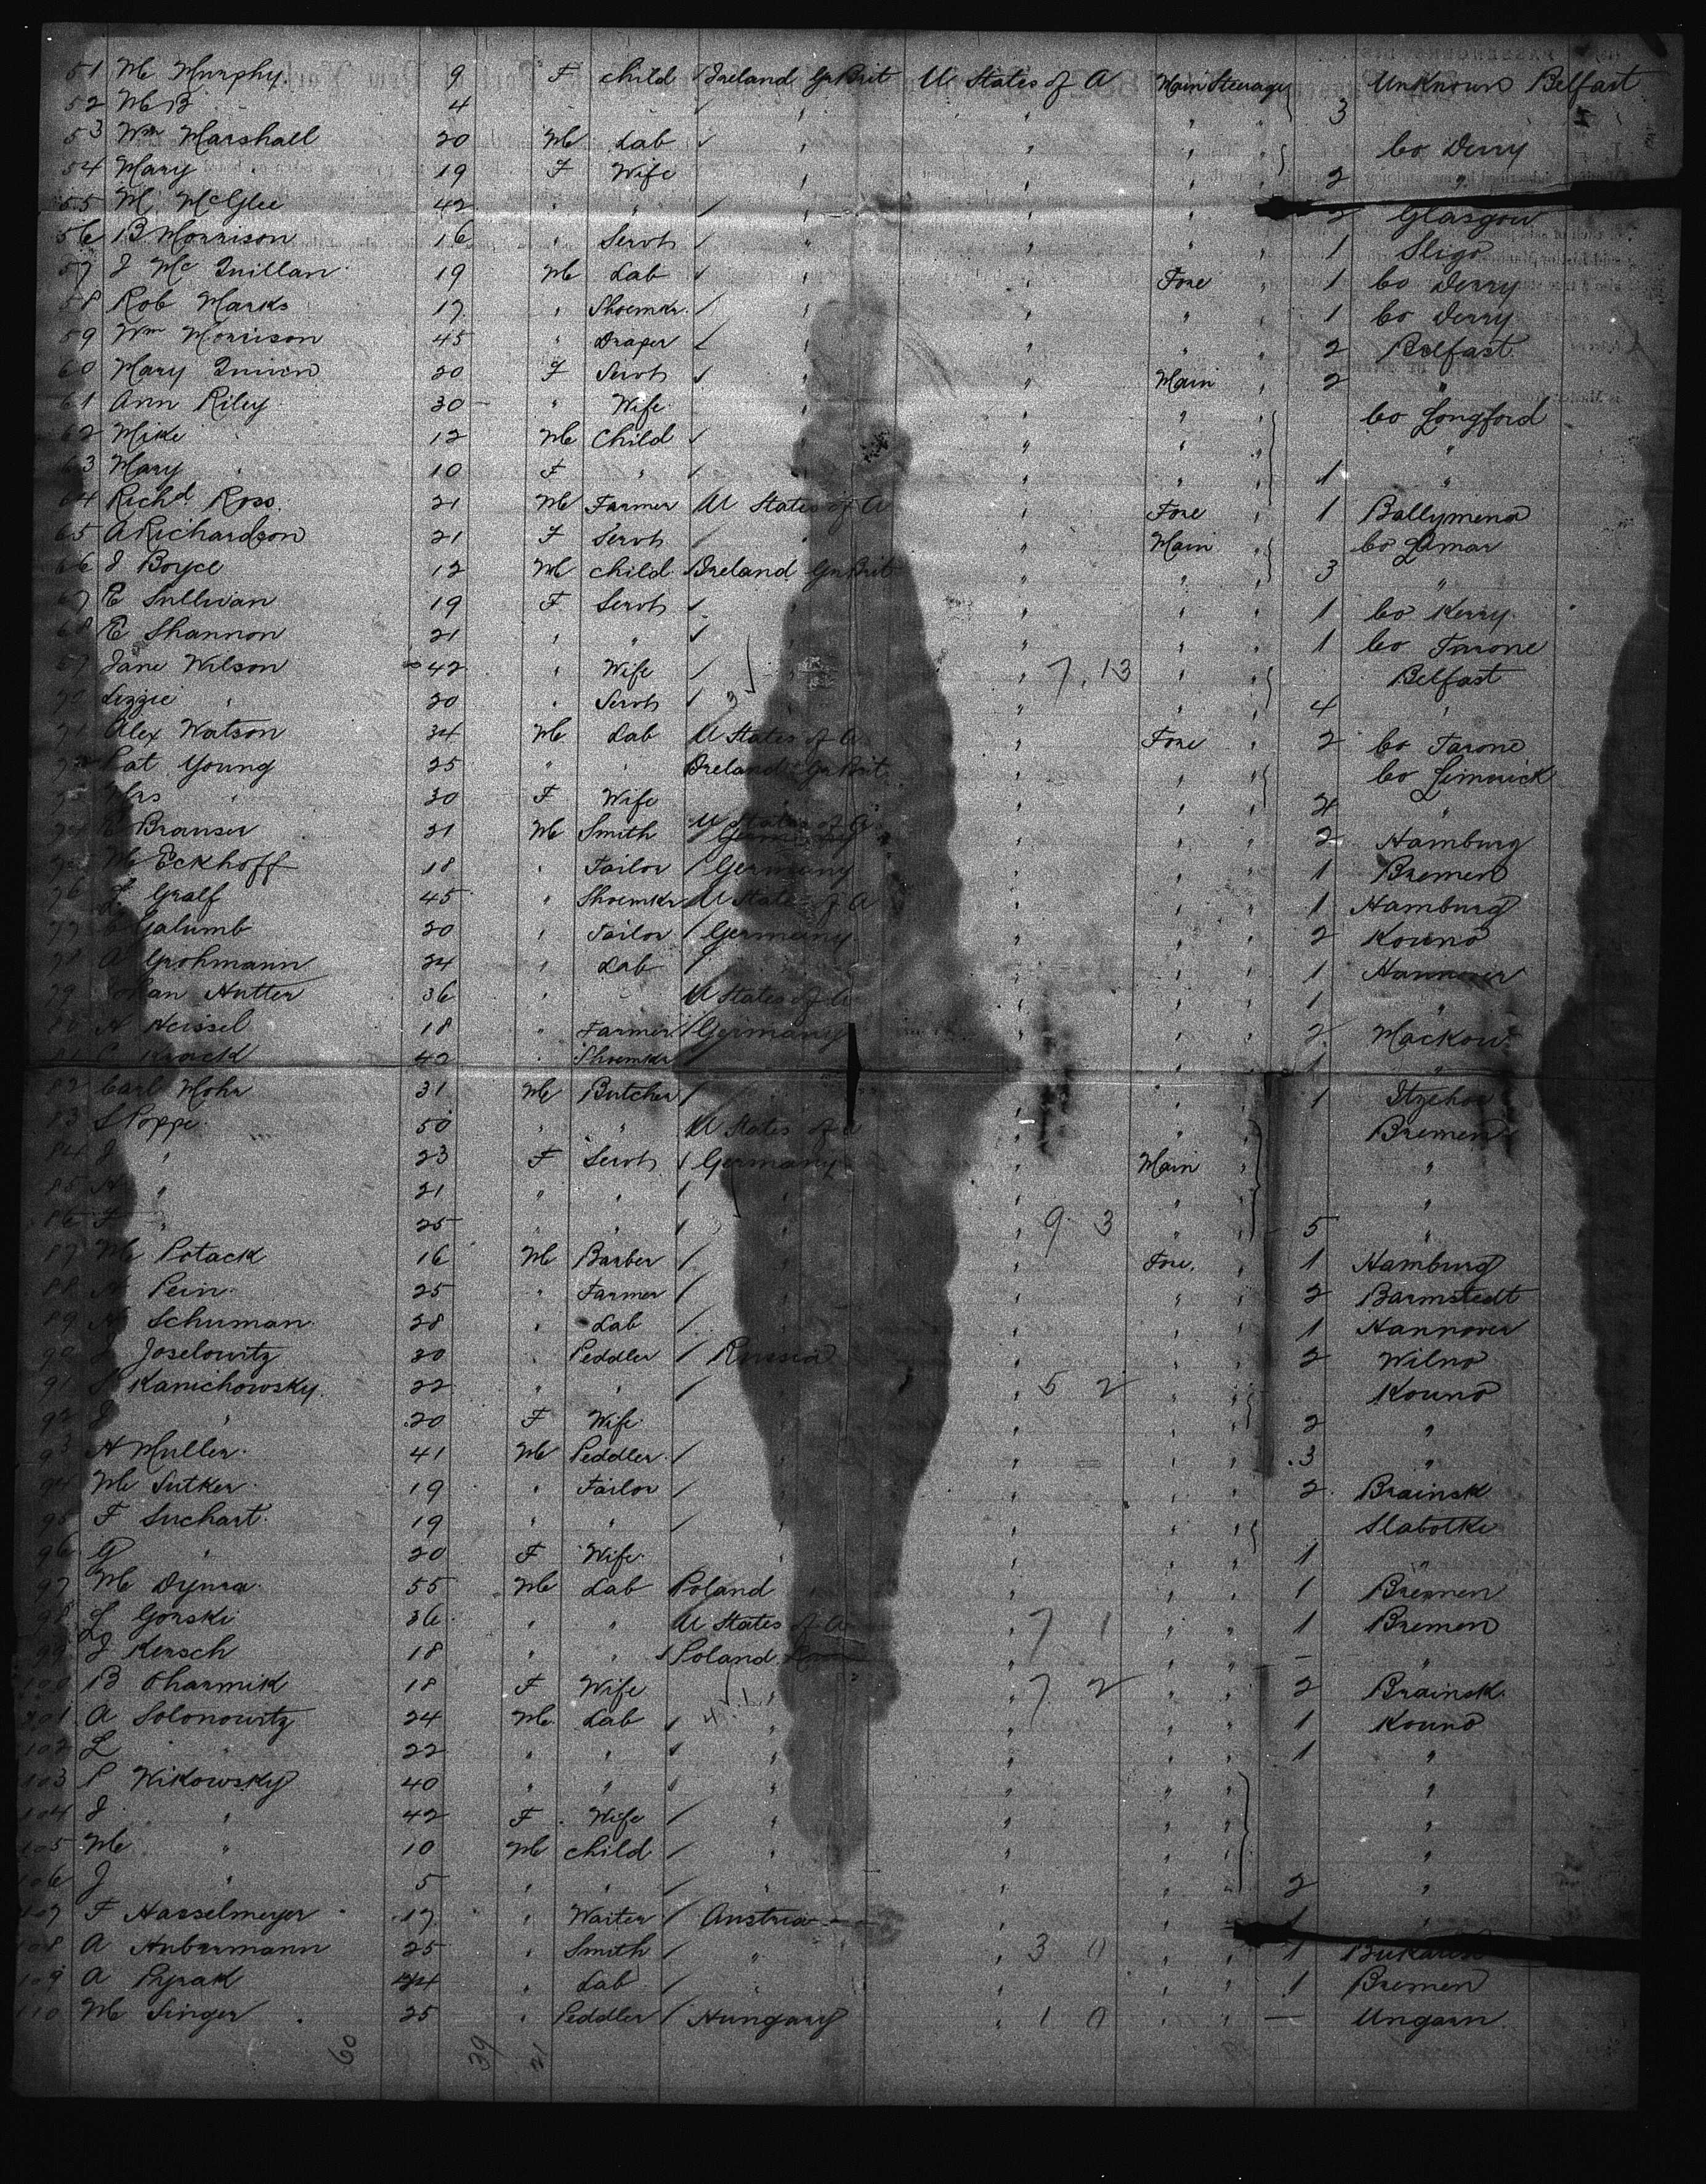 51 M Murphy 9 F Child Ireland Gr Brit U States of A Main Steerage Unknown Belfast
52 M B 4 " " " " 3 "
53 Wm Marshall 20 M Lab " " " " Co Derry
54 Mary 19 F Wife " " " " 2 "
55 M McGlee 42 " " " " " 2 Glasgow
56 B Morrison 16 " Servt " " " 1 Sligo
57 J Mc Quillan 19 M Lab " " Fore " 1 Co Derry
58 Rob Marks 17 " Shoemkr " " " " 1 Co Derry
59 Wm Morrison 45 " Draper " " " " 2 Belfast
60 Mary Quinn 20 F Servt " " Main " 2 "
61 Ann Riley 30 " Wife " " " Co Longford
62 Mike " 12 M Child " " " "
63 Mary " 10 F " " " " 1 "
64 Richd Ross 21 M Farmer U States of A " Fore " 1 Ballymena
65 A Richardson 21 F Servt " " Main "
66 J Boyce 12 M Child Ireland Gr Brit " " " 3 "
67 E Sullivan 19 F Servt " " " " 1 Co Kerry
68 E Shannon 21 " " " " " " 1 Co Tirone
Jane Wilson 42 " Wife " 7, 13 " " Belfast
70 Lizzie " 20 " Servt 3 " " " 4 "
71 Alex Watson 34 M Lab U States of A " Fore " 2 Co Tarone
Pat Young 25 " " Ireland Gr Brit " " " Co Limerick
Mrs " 30 F Wife " " " "
74 Brauser 21 M Smith U States of A " " " 2 Hamburg
M Eckhoff 18 " Tailor Germany " " " 1 Bremen
76 Gralf 45 " Shoemkr U States of A " " " 1 Hamburg
77 Galumb 20 " Tailor Germany " " " 2 Kouno
78 A Grohmann 24 " Lab " " " " 1 Hannover
79 Johan Hutter 36 " " U States of A " " " 1 "
80 N Neissel 18 " Farmer Germany " " " 2 Mackow
81 C Krack 42 " Shoemkr " " " 1 "
82 Carl Mohr 31 M Butcher " " " 1 Itzehoe
83 S Poppe 50 " " U States of A " " " Bremen
84 J " 23 F Servt Germany " Main " "
85 H " 21 " " " " " " "
86 F " 25 " " " 9 3 " " 5 "
87 M Potack 16 M Barber " " Fore " 1 Hamburg
88 N Pein 25 " Farmer " " " " 2 Barmstedt
89 Schuman 28 " Lab " " " " 1 Hannover
90 Joselowitz 30 " Peddler Russia " " " 2 Wilno
91 S Kanichowsky 22 " " " 5 2 " " Kouno
92 J " 20 F Wife " " " " 2 "
93 H Muller 41 M Peddler " " " " 3 "
94 M Sutker 19 " Tailor " " " " 2 Brainsk
95 F Suchart 19 " " " " " " Slabotke
96 G " 20 F Wife " " " " 1 "
97 M Dynra 55 M Lab Poland " " " 1 Bremen
98 L Gorski 36 " " U States of A 7 1 " " 1 Bremen
99 J Kersch 18 " " Poland " " " – "
100 B Charmik 18 F Wife " 7 2 " " 2 Brainsk
101 A Solonowitz 24 M Lab " " " " 1 Kouno
102 L " 22 " " " " " " 1 "
103 P Wikowsky 40 " " " " " " "
104 J " 42 F Wife " " " " "
105 M " 10 M Child " " " " "
106 J " 5 " " " " " " 2 "
107 F Hasselmeyer 17 " Waiter Austria " " " 1 "
108 A Hubermann 25 " Smith " 3 0 " " 1 Bukarest
109 A Pyrak " Lab " " " " 1 Bremen
110 M Singer 25 " Peddler Hungary 1 0 " " – Ungarn
60 39 21